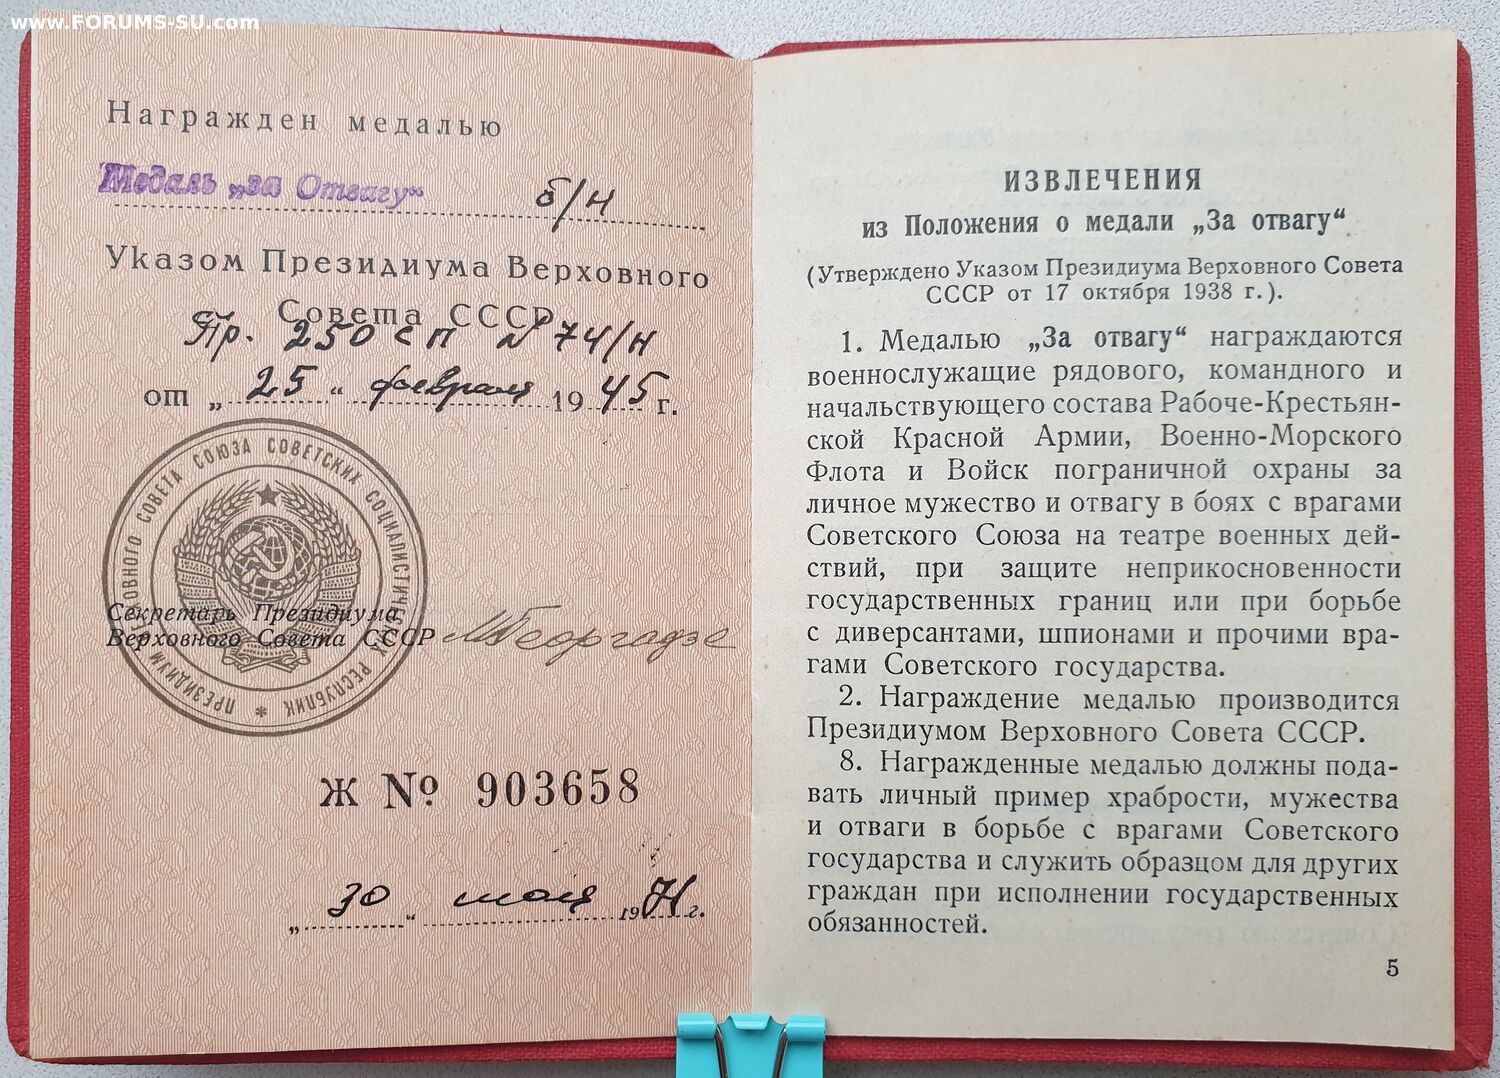 www.FORUMS-SU.com
Награжден медалью
Медаль „за Отвагу“ б/н
Указом Президиума Верховного
Совета СССР
Пр. 250 сп № 74/н
от „25“ февраля 1945 г.
ПРЕЗИДИУМ ВЕРХОВНОГО СОВЕТА СОЮЗА СОВЕТСКИХ СОЦИАЛИСТИЧЕСКИХ РЕСПУБЛИК
Секретарь Президиума
Верховного Совета СССР МГеоргадзе
Ж № 903658
„30“ мая 1971 г.
ИЗВЛЕЧЕНИЯ
из Положения о медали „За отвагу“
(Утверждено Указом Президиума Верховного Совета
СССР от 17 октября 1938 г.).
1. Медалью „За отвагу“ награждаются
военнослужащие рядового, командного и
начальствующего состава Рабоче-Крестьян-
ской Красной Армии, Военно-Морского
Флота и Войск пограничной охраны за
личное мужество и отвагу в боях с врагами
Советского Союза на театре военных дей-
ствий, при защите неприкосновенности
государственных границ или при борьбе
с диверсантами, шпионами и прочими вра-
гами Советского государства.
2. Награждение медалью производится
Президиумом Верховного Совета СССР.
8. Награжденные медалью должны пода-
вать личный пример храбрости, мужества
и отваги в борьбе с врагами Советского
государства и служить образцом для других
граждан при исполнении государственных
обязанностей.
5